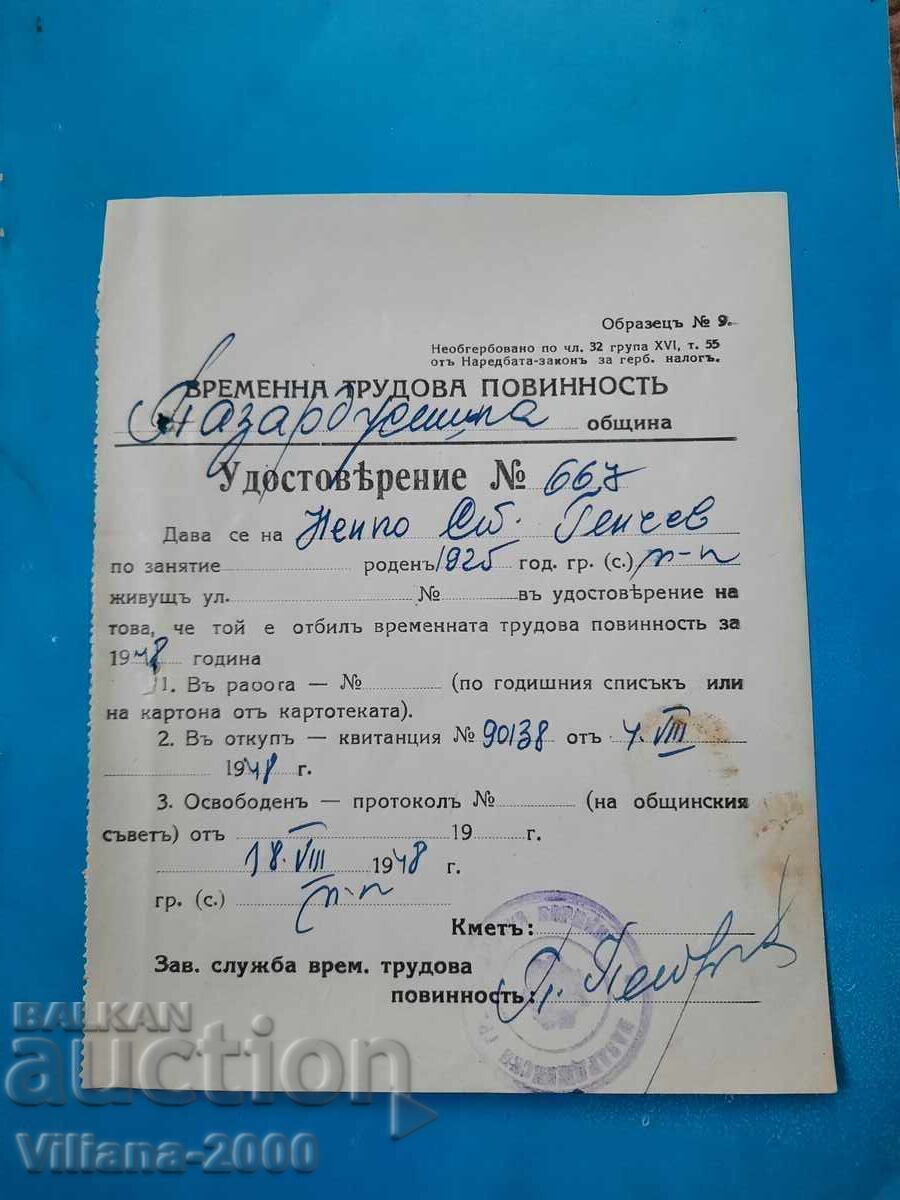 Образецъ № 9.
Необгербовано по чл. 32 група XVI, т. 55
отъ Наредбата-законъ за герб. налогъ.
ВРЕМЕННА ТРУДОВА ПОВИННОСТЬ
община
Удостовѣрение № 667
Дава се на Ненко Ст. Генчев
по занятие роденъ 1925 год. гр. (с.) п-к
живущъ ул. № въ удостовѣрение на
това, че той е отбилъ временната трудова повинность за
1948 година
1. Въ работа — № (по годишния списъкъ или
на картона отъ картотеката).
2. Въ откупъ — квитанция № 90138 отъ 7. VIII
1948 г.
3. Освободенъ — протоколъ № (на общинския
съветъ) отъ 19 г.
18. VIII 1948 г.
гр. (с.) п-к
Кметъ:
Зав. служба врем. трудова
повинность:
BALKAN
auction
Viliana-2000